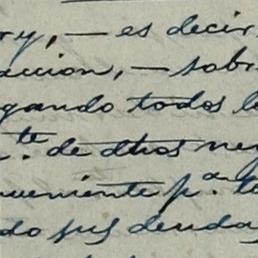 ry, — es decir,
accion, — sobr
gando todos l
te. de dhos neg
veniente pa. t
do sus deudas